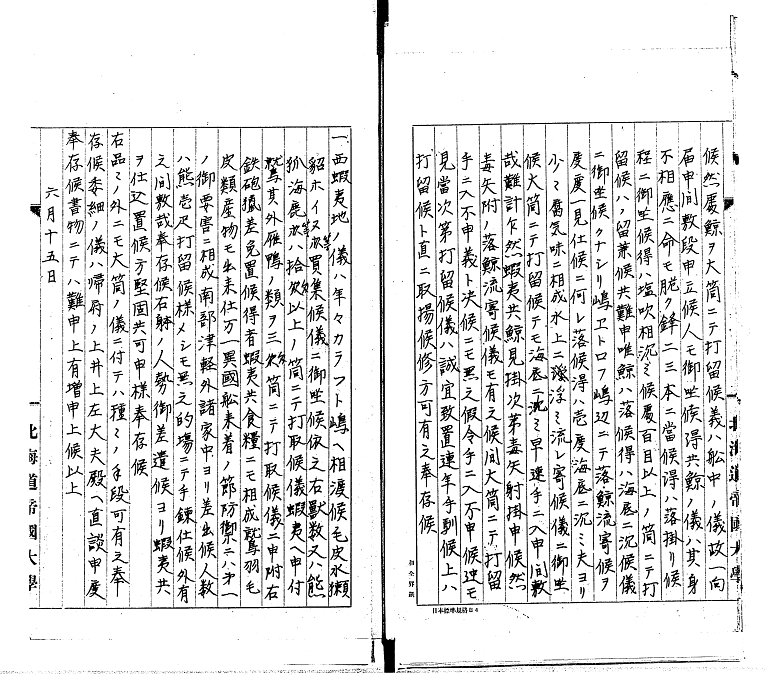 候然處鯨ヲ大筒ニテ打留候義ハ船中ノ儀故一向
届申間敷段申立候人モ御坐候得共鯨ノ儀ハ其身
不相應ニ命モ脆ク鋒二三本ニ當候得ハ落掛リ候
程ニ御坐候得ハ塩吹相沉ミ候處百目以上ノ筒ニテ打
留候ハノ留兼候共難申唯鯨ハ落候得ハ海底ニ沉候儀
ニ御坐候クナシリ嶋ヱトロフ嶋辺ニテ落鯨流寄候ヲ
度度一見仕候ニ何レ落候得ハ壱度海底ニ沉ミ夫ヨリ
少々腐気味ニ相成水上ニ浮ミ流レ寄候儀ニ御坐
候大筒ニテ打留候テモ海底ニ沉ミ早速手ニ入申間敷
哉難計乍然蝦夷共鯨見掛次第毒矢射掛申候然
毒矢附ノ落鯨流寄候儀モ有之候間大筒ニテ打留
手ニ入不申義ト决候ニモ無之假令手ニ入不申候迚モ
見當次第打留候儀ハ誠宜致置連年手馴候上ハ
打留候ト直ニ取揚候修方可有之奉存候
北海道帝國大學
日本標準規格B4
一西蝦夷地ノ儀ハ年々カラフト嶋ヘ相渡候毛皮水獺
貂ホイヌ等買集候儀ニ御坐候依之右獸数又ハ熊
狐海鹿等ハ拾匁以上ノ筒ニテ打取候儀蝦夷ヘ申付
鷲其外雁鴨ノ類ヲ三匁筒ニテ打取候儀ニ申附右
鉄砲獵差免置候得者蝦夷共食糧ニモ相成鷲羽毛
皮類産物モ出来仕万一異國船来着ノ節防禦ニハ才一
ノ御要害ニ相成南部津軽外諸家中ヨリ差出候人数
ハ熊壱疋打留候様メシモ無之的塲ニテ手錬仕候外有
之間敷哉奉存候右躰ノ人勢御差遣候ヨリ蝦夷共
ヲ仕込置候方堅固共可申様奉存候
右品々ノ外ニモ大筒ノ儀ニ付テハ種々ノ手段可有之奉
存候委細ノ儀ハ帰府ノ上井上左大夫殿ヘ直談申度
奉存候書物ニテハ難申上有増申上候以上
六月十五日
北海道帝國大學